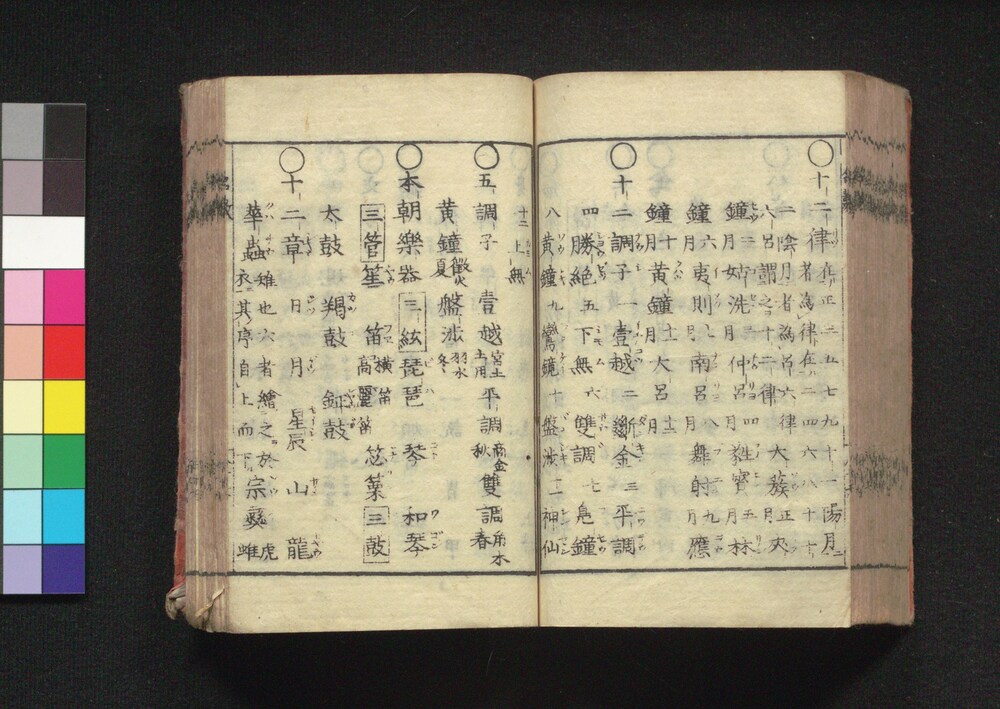 〇十二律 在正三五七九十一陽月
二陰月者為律在二四六八十十二
者為呂六律
六呂謂之十二律 大蔟正月 夾
鐘二月 姑洗三月 仲呂四月 蕤賓五月 林
鐘六月 夷則七月 南呂八月 無射九月 應
鐘十月 黄鐘十一月 大呂十二月
〇十二調子 一壹越 二斷金 三平調
四勝絶 五下無 六雙調 七鳧鐘
八黄鐘 九鸞鏡 十盤渉 十一神仙
十二上無
〇五調子 壹越宮土土用 平調商金秋 雙調角木春
黄鐘徴火夏 盤渉羽水冬
〇本朝樂器 三絃 琵琶 琴 和琴
三管 笙 笛 横笛高麗笛 三鼓
太鼓 羯鼓 鉦鼓
〇十二章 日 月 星辰 山 龍
華蟲 雉也 六者繪之於
衣其序自上而下 宗彜 虎
蜼